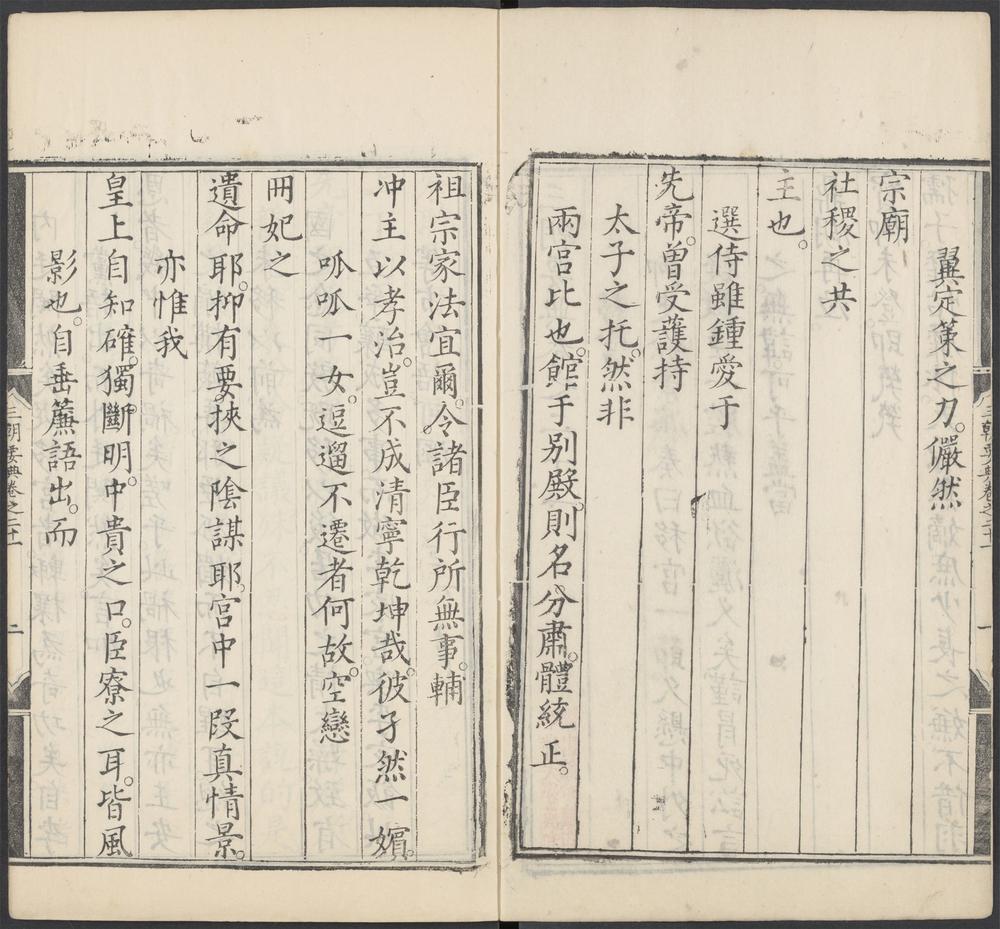 翼定策之力。儼然
宗廟
社稷之共
主也。
選侍雖鍾愛于
先帝。曾受護持
太子之托。然非
兩宮比也。館于別殿。則名分肅。體統正。
祖宗家法宜爾。今諸臣行所無事。輔
冲主以孝治。豈不成清寧乾坤哉。彼孑然一嬪。
呱呱一女。逗遛不遷者何故。空戀
冊妃之
遺命耶。抑有要挾之陰謀耶。宮中一段真情景。
亦惟我
皇上自知確。獨斷明。中貴之口。臣寮之耳。皆風
影也。自垂簾語出。而
三朝要典卷之二十一
二